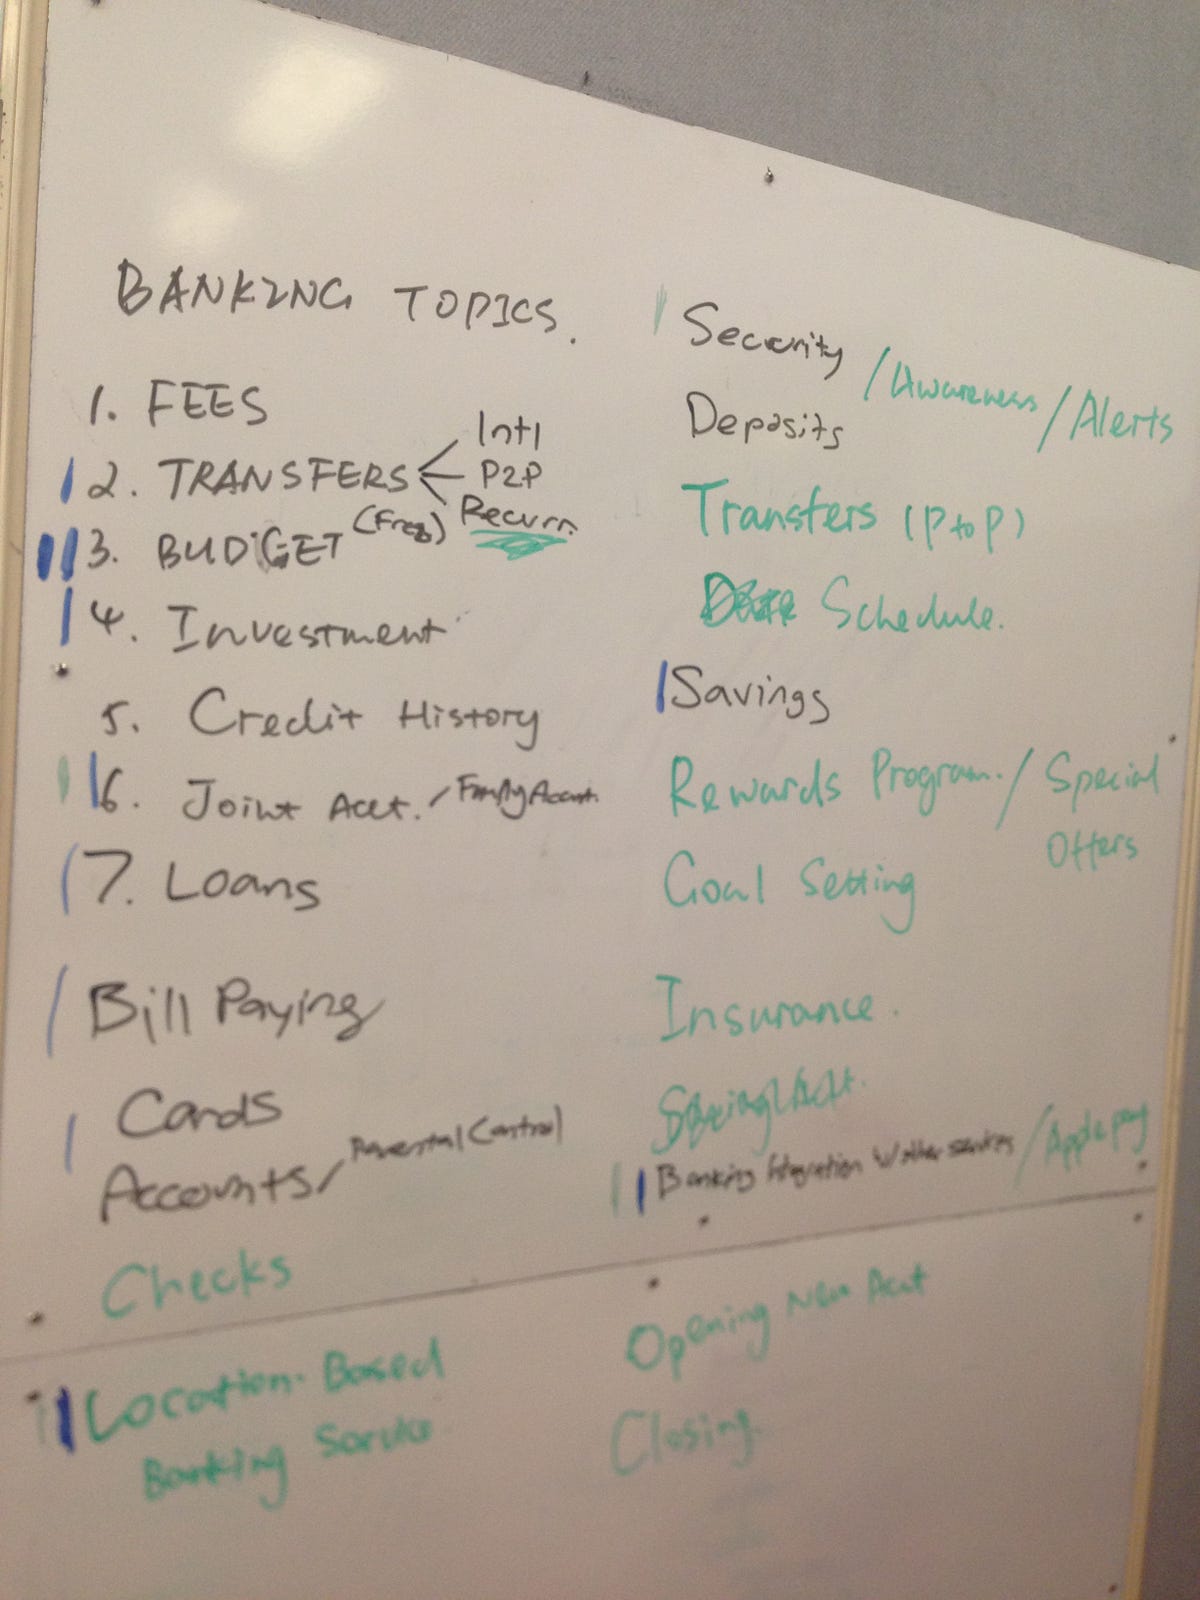 BANKING TOPICS.
1. FEES
2. TRANSFERS
Intl
P2P
Recurr.
3. BUDGET (Freq)
4. Investment
5. Credit History
6. Joint Acct. / Family Account.
7. Loans
Bill Paying
Cards
Accounts / Parental Control
Checks
Location-Based
Banking Service
Security / Awareness / Alerts
Deposits
Transfers (P to P)
Schedule.
Savings
Rewards Program. / Special
Offers
Goal Setting
Insurance.
Banking Integration W other services / Apple pay
Opening New Acct
Closing.